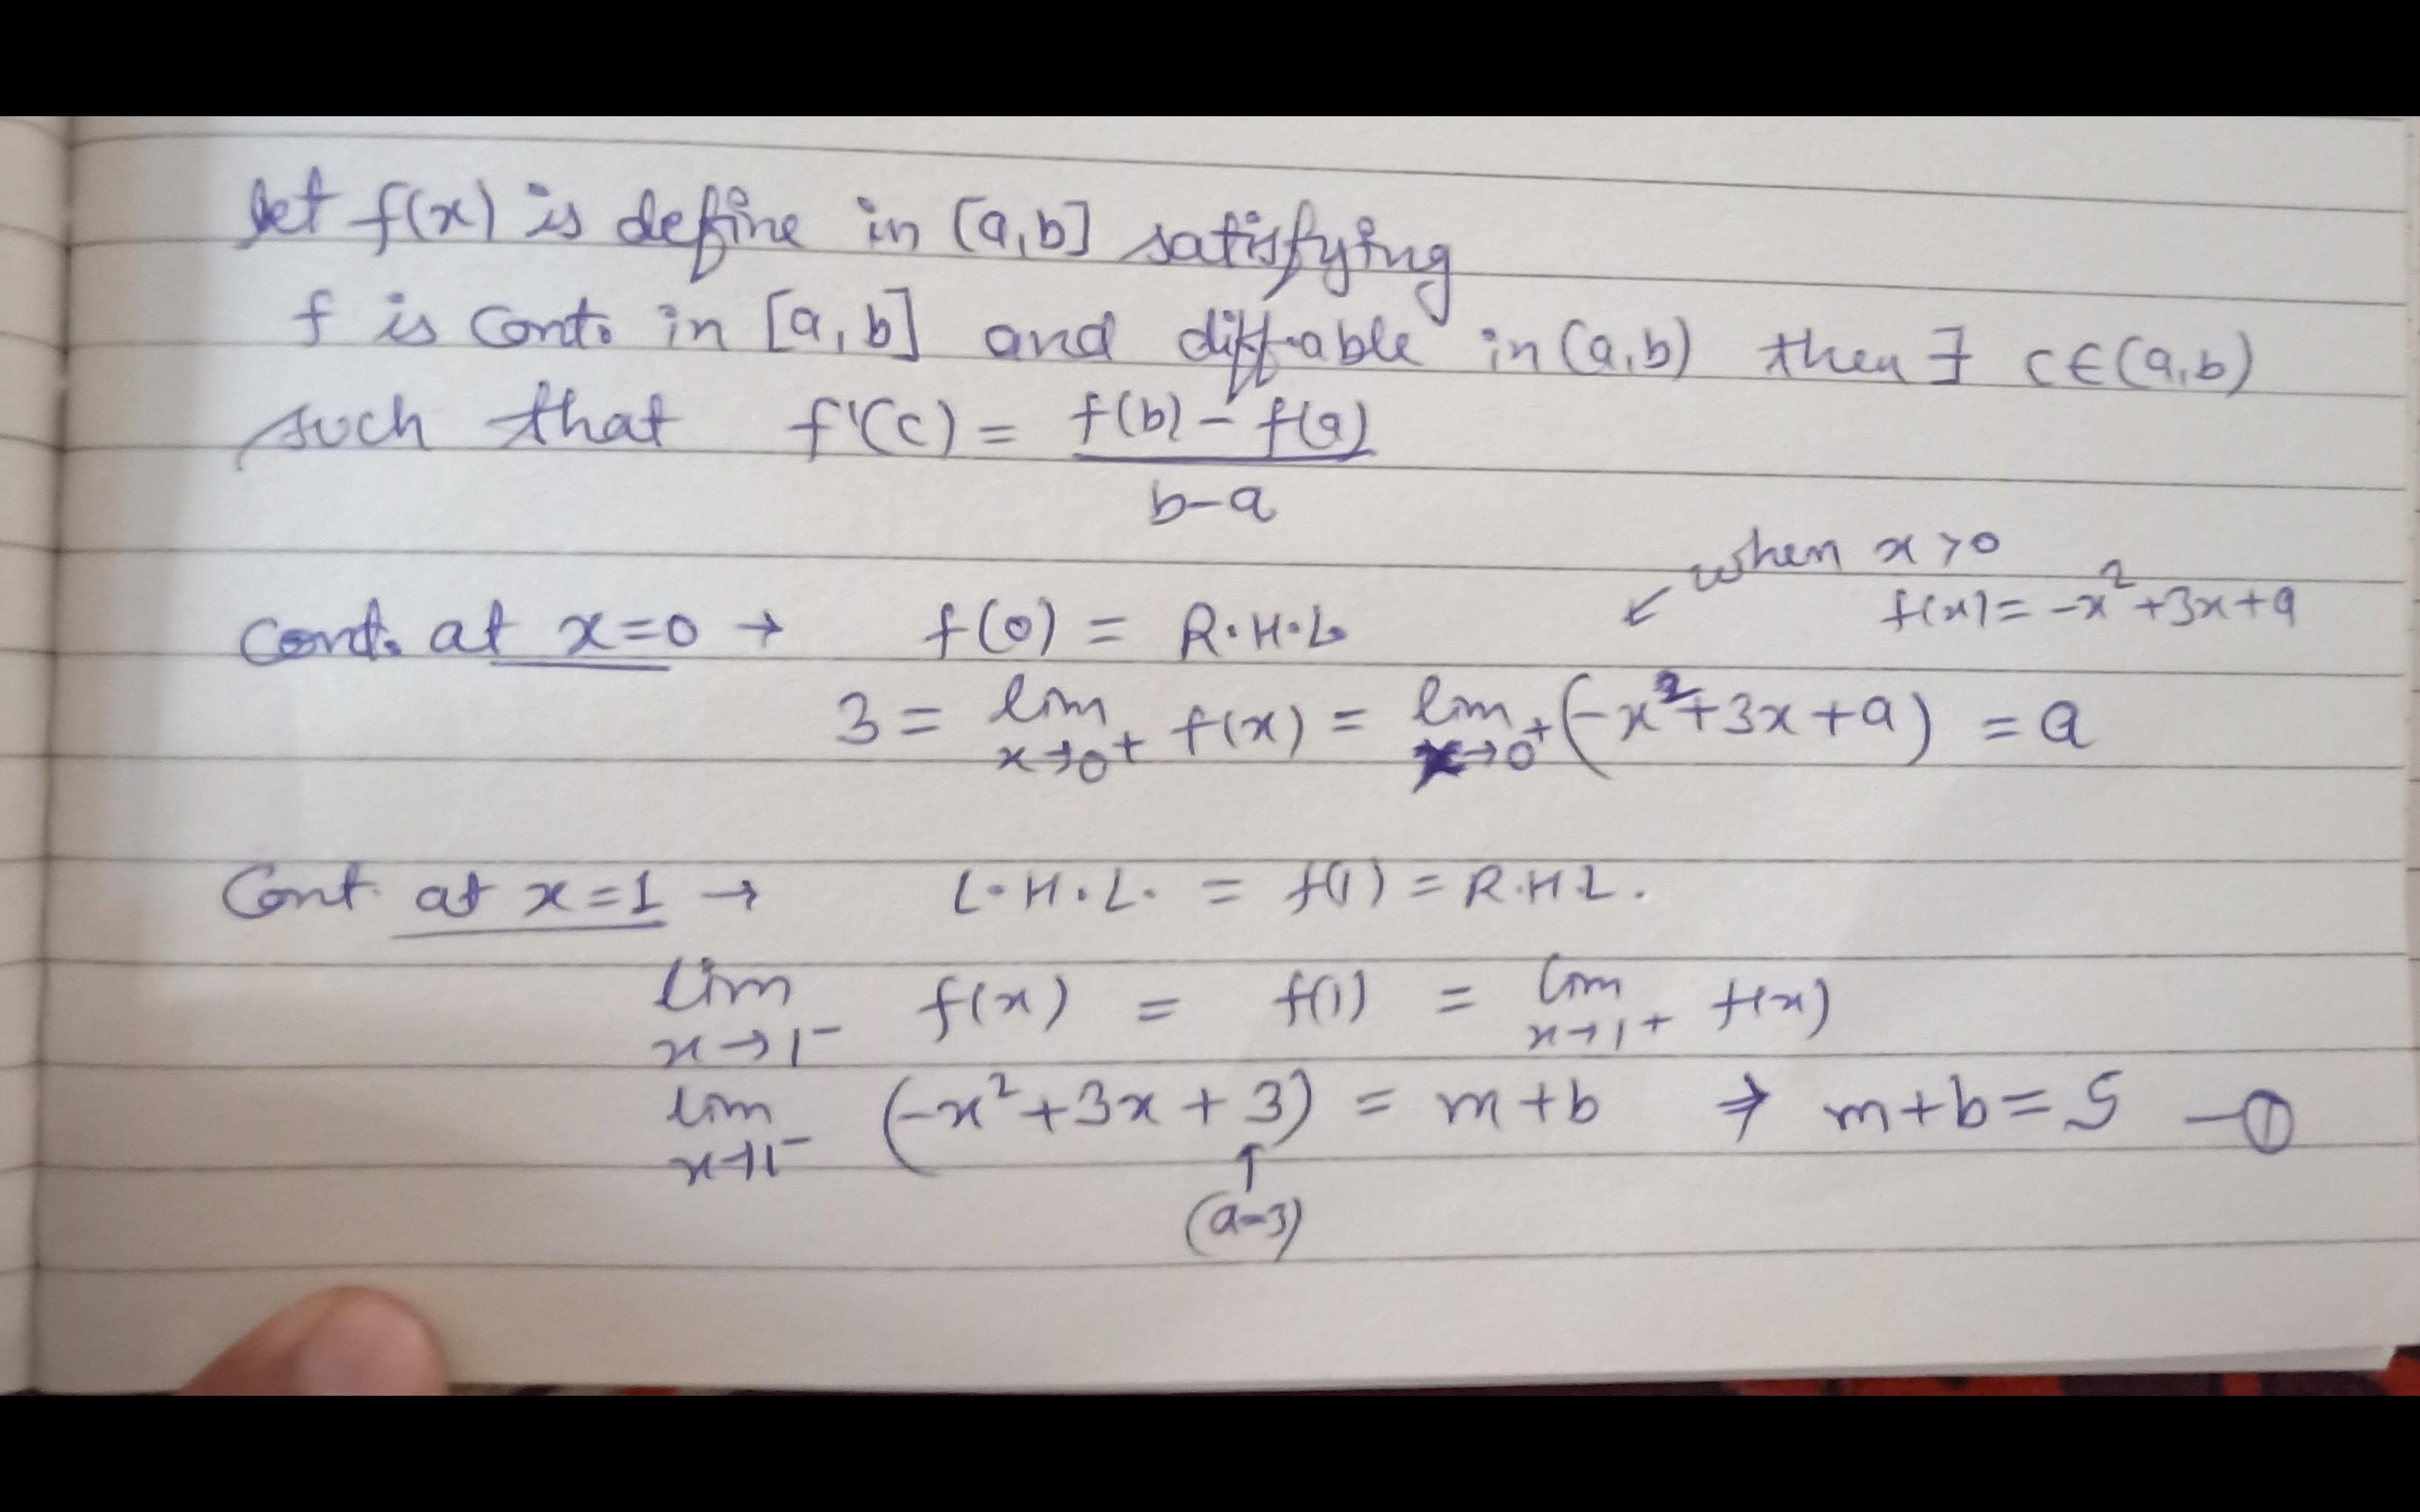 let f(x) is define in [a,b] satisfying
f is cont. in [a,b] and diff.able in (a,b) then ∃ c∈(a,b)
such that f'(c) = f(b) - f(a)
b-a
when x>0
f(x) = -x²+3x+a
cont. at x=0 → f(0) = R.H.L.
3 = lim x→0+ f(x) = lim x→0+ (-x²+3x+a) = a
Cont. at x=1 → L.H.L. = f(1) = R.H.L.
lim x→1- f(x) = f(1) = lim x→1+ f(x)
lim x→1- (-x²+3x+3) = m+b ⇒ m+b=5 -①
↑
(a=3)